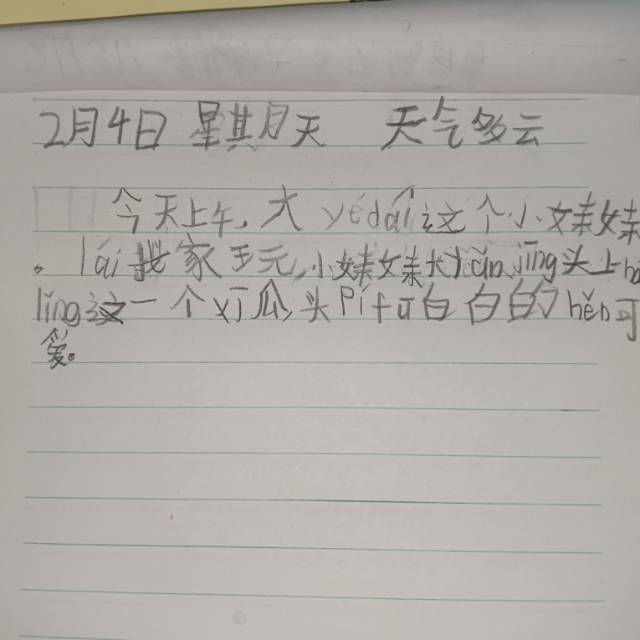 2月4日 星其月天 天气多云
今天上午,大yédaǐ这个小妹妹
。lái我家王元,小妹妹大yǎn jīng头上
līng这一个xī瓜头Pífū白白的hěn可
爱。